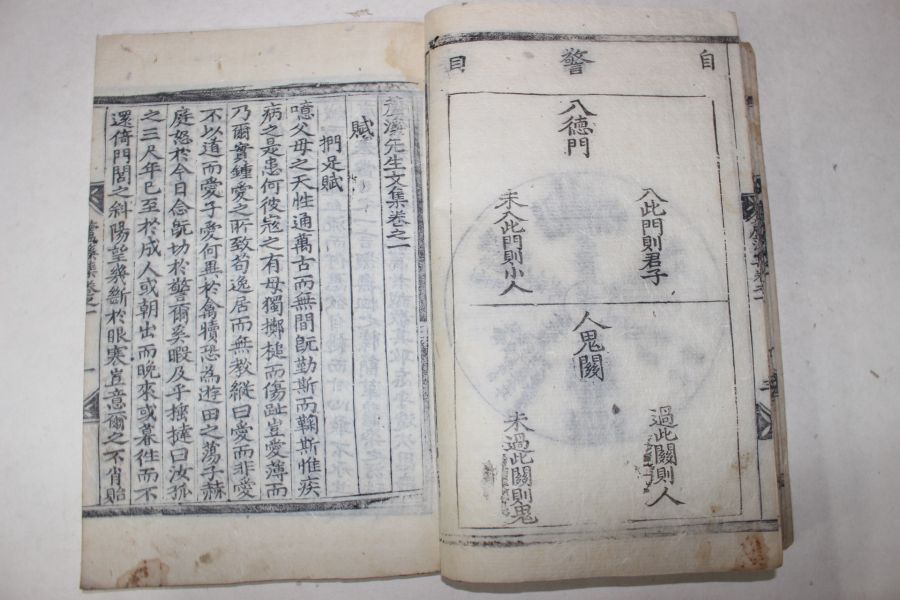 自警目
入德門
入此門則君子
未入此門則小人
人鬼關
過此關則人
未過此關則鬼
蘆溪先生文集卷之一
賦
捫足賦
噫父母之天性通萬古而無間旣勤斯而鞠斯惟疾
病之是患何彼寇之有母獨擲槌而傷趾豈愛薄而
乃爾實鍾愛之所致苟逸居而無教縱曰愛而非愛
不以道而愛子愛何異於禽犢恐為遊田之蕩子赫
庭怒於今日念旣切於警爾奚暇及乎撻曰汝孤
之三尺年已至於成人或朝出而晚來或暮徃而不
還倚門閭之斜陽望幾斷於眼寒豈意爾之不肖貽
蘆溪集卷之一